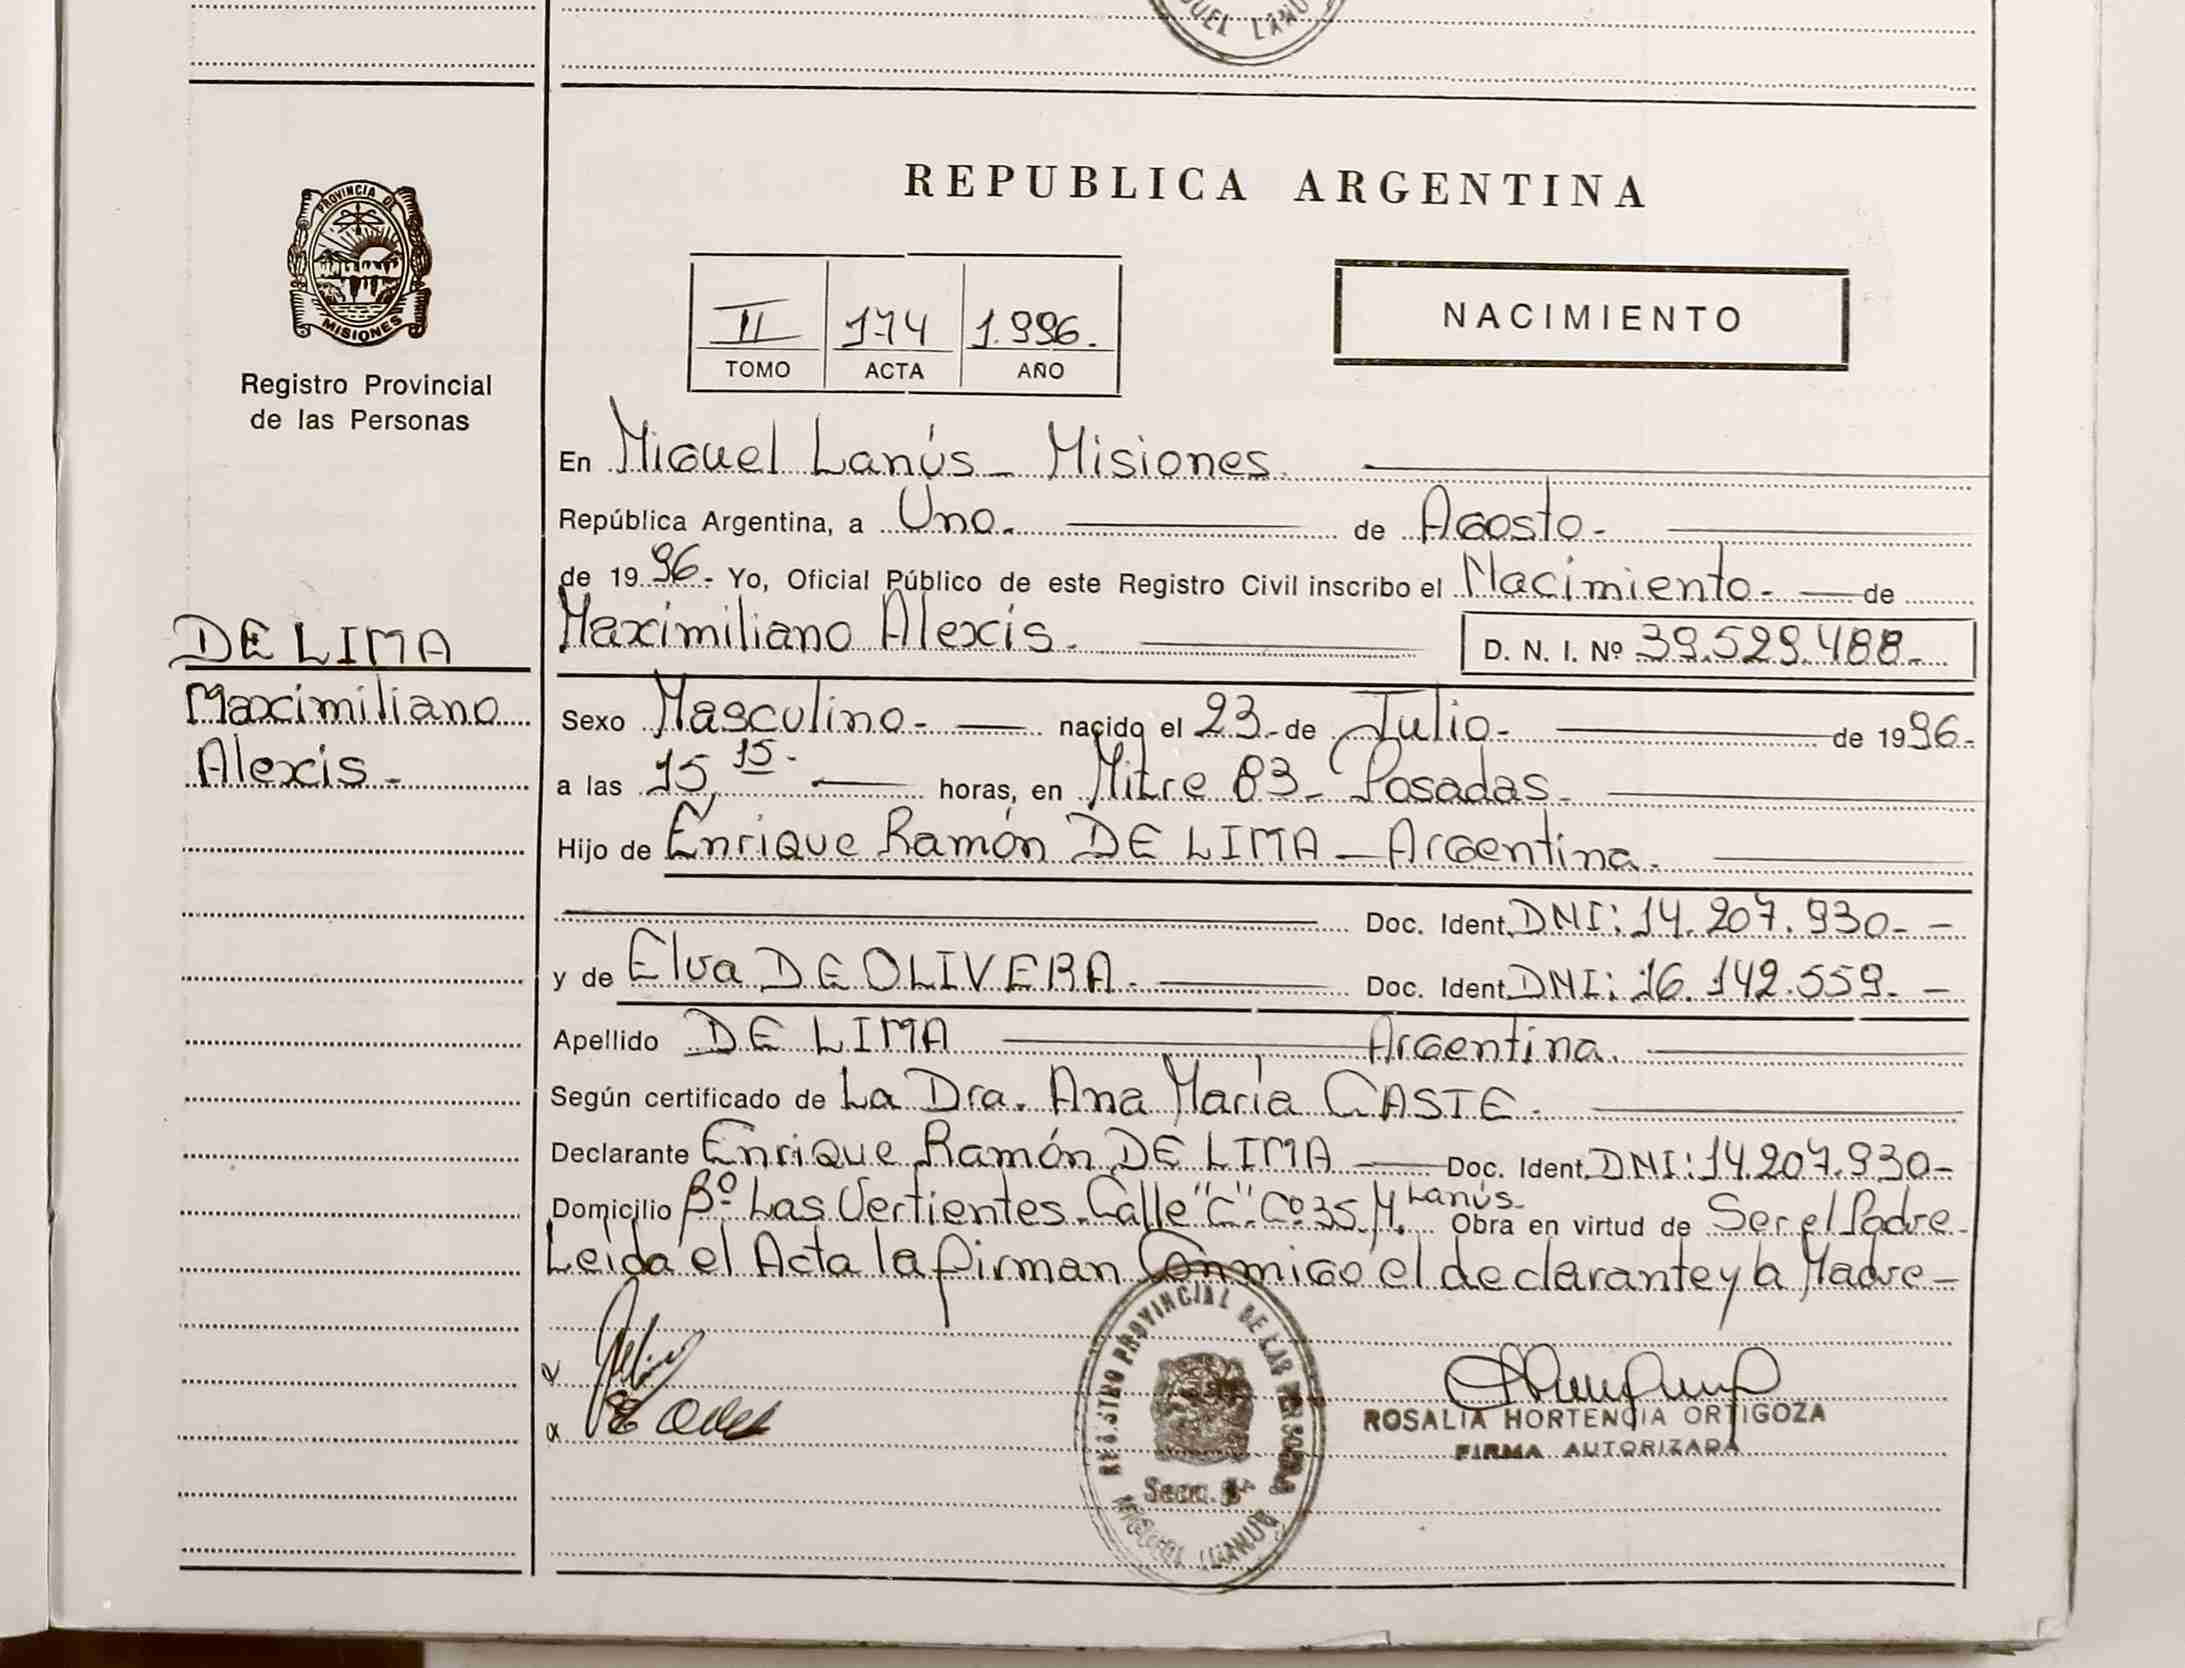 GUEL LANU
PROVINCIA D
MISIONES
Registro Provincial
de las Personas
DE LIMA
Maximiliano
Alexis -
REPUBLICA ARGENTINA
II 174 1.996.
TOMO ACTA AÑO
NACIMIENTO
En Miguel Lanús - Misiones.
República Argentina, a Uno. de Agosto-
de 1996.- Yo, Oficial Público de este Registro Civil inscribo el Nacimiento. - de
Maximiliano Alexis. D. N. I. Nº 39.529.488.-
Sexo Masculino.- nacido el 23.- de Julio- de 1996.-
a las 15,15.- horas, en Mitre 83 - Posadas -
Hijo de Enrique Ramón DE LIMA - Argentina.
Doc. Ident. DNI: 14.207.930.- -
y de Elva DE OLIVERA. Doc. Ident. DNI: 16.142.559.- -
Apellido DE LIMA Argentina.
Según certificado de La Dra. Ana María CASTE.
Declarante Enrique Ramón DE LIMA Doc. Ident. DNI: 14.207.930-
Domicilio Bº Las Vertientes. Calle "C". Cº 35. M. Lanús- Obra en virtud de Ser el Padre-
Leida el Acta la firman Conmigo el declarante y la Madre-
REGISTRO PROVINCIAL DE LAS PERSONAS
Secc.
MIGUEL LANUS
ROSALIA HORTENCIA ORTIGOZA
FIRMA AUTORIZADA